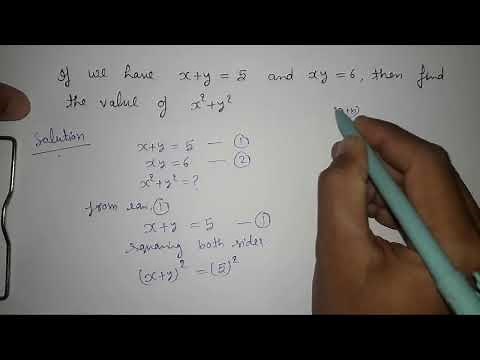 If we have x+y = 5 and xy = 6, then find
the value of x²+y²
Solution
x+y = 5 — ①
xy = 6 — ②
x²+y² = ?
from eqn, ①
x+y = 5 — ①
squaring both sides
(x+y)² = (5)²